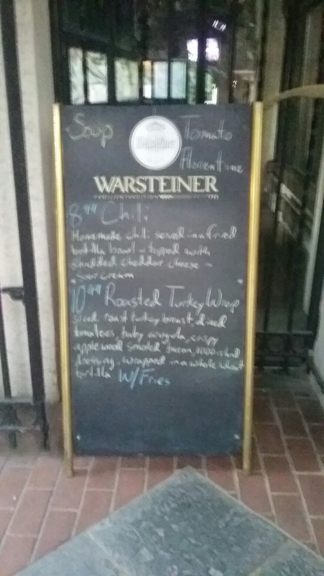 Soup Tomato
Florentine
WARSTEINER
8.99 Chili
Homemade chili served in a fried
tortilla bowl - topped with
shredded cheddar cheese -
sour cream
10.99 Roasted Turkey Wrap
sliced roast turkey breast, diced
tomatoes, baby arugula, crispy
applewood smoked bacon,
dressing, wrapped in a whole wheat
tortilla W/Fries